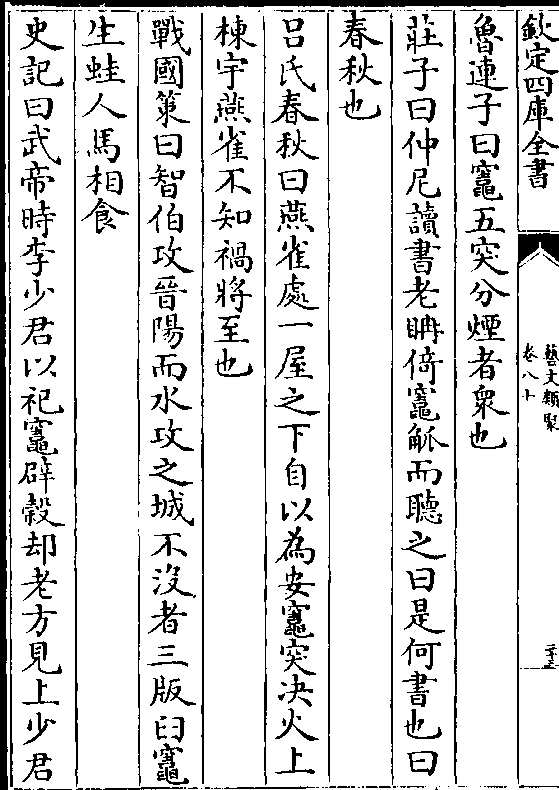 欽定四庫全書
藝文類聚
卷八十
魯連子曰竈五突分煙者衆也
莊子曰仲尼讀書老聃倚竈觚而聽之曰是何書也曰
春秋也
吕氏春秋曰燕雀處一屋之下自以為安竈突决火上
棟宇燕雀不知禍將至也
戰國策曰智伯攻晉陽而水攻之城不沒者三版臼竈
生蛙人馬相食
史記曰武帝時李少君以祀竈辟穀却老方見上少君